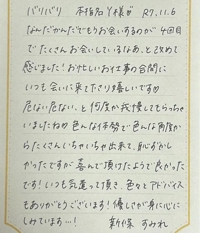 バリバリ 本指名Y様が R7.11.6
なんだかんだでもうお会いするのが4回目
でたくさんお会いしているなあ、と改めて
感じました！お忙しいお仕事の合間に
いつも会いに来て下さり嬉しいですが
危ない危ない、と何度か我慢してもらっちゃ
いましたね 色んな体勢で色んな角度か
らたくさんいちゃいちゃ出来て、恥ずかし
かったですが喜んで頂けたようで良かった
です！いつも気遣って頂き、色々とアドバイス
もありがとうございます！優しさが身に心に
しみています…！
新條 すみれ